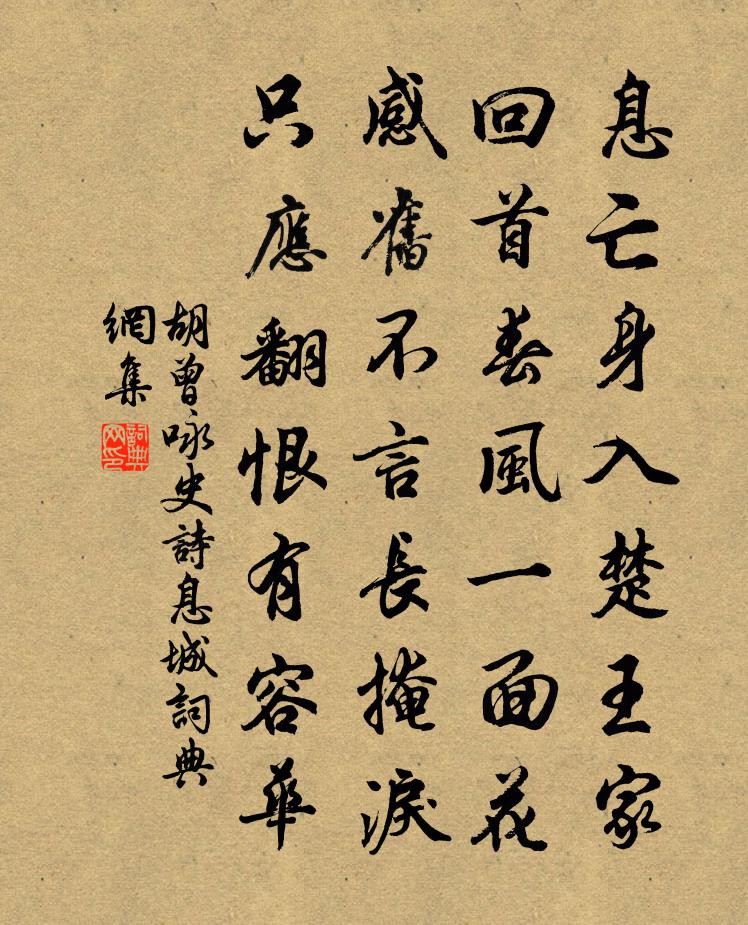 息亡身入楚王家
回首春風一面花
感舊不言長掩淚
只應翻恨有容華
胡曾咏史詩息城詞典
網集
詞典網印